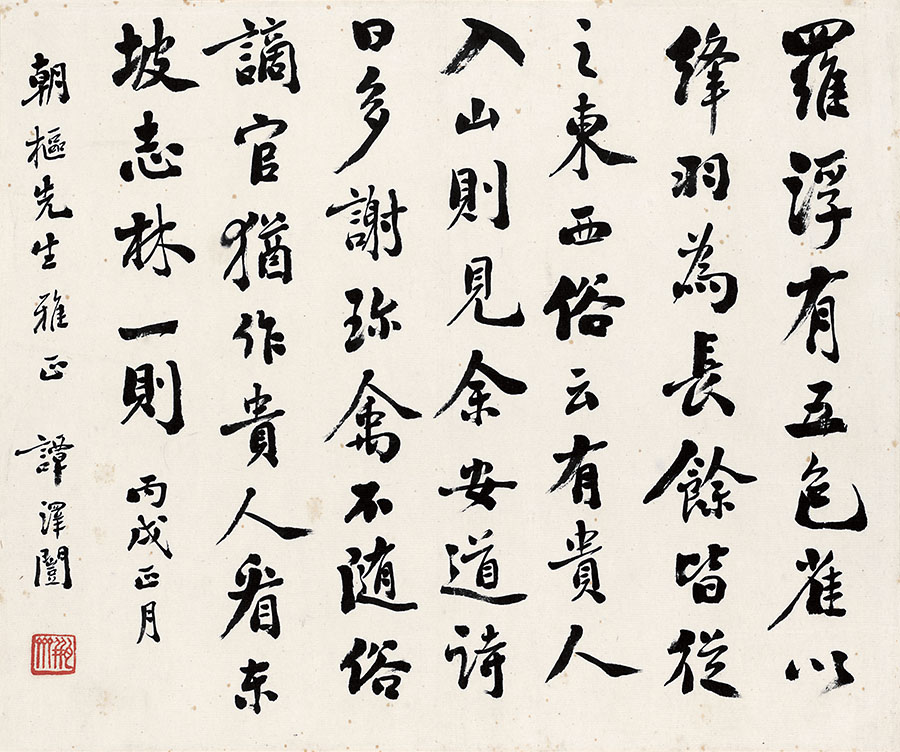 羅浮有五色雀以
絳羽為長餘皆從
之東西俗云有貴人
入山則見余安道詩
日多謝珎禽不随俗
謫官猶作貴人看東
坡志林一則 丙戌正月
朝樞先生雅正 譚澤闓